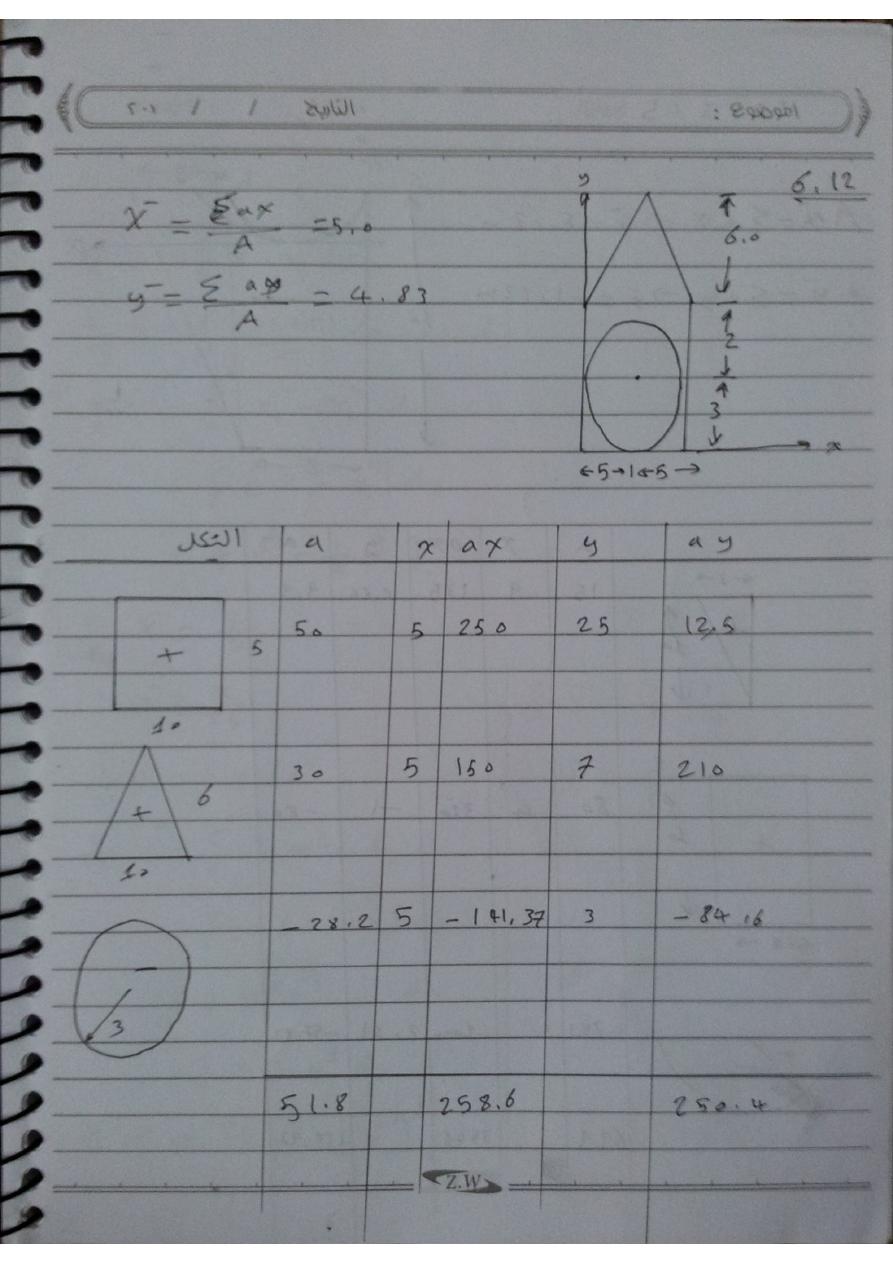 الموضوع :
التاريخ / / ٢٠١
6.12
x̄ = Σax / A = 5.0
ȳ = Σay / A = 4.83
y
6.0
2
3
x
←5→|←5→
الشكل a x ax y ay
+ 5 10 50 5 250 25 12.5
+ 6 10 30 5 150 7 210
− 3 −28.2 5 −141.37 3 −84.6
51.8 258.6 250.4
Z.W